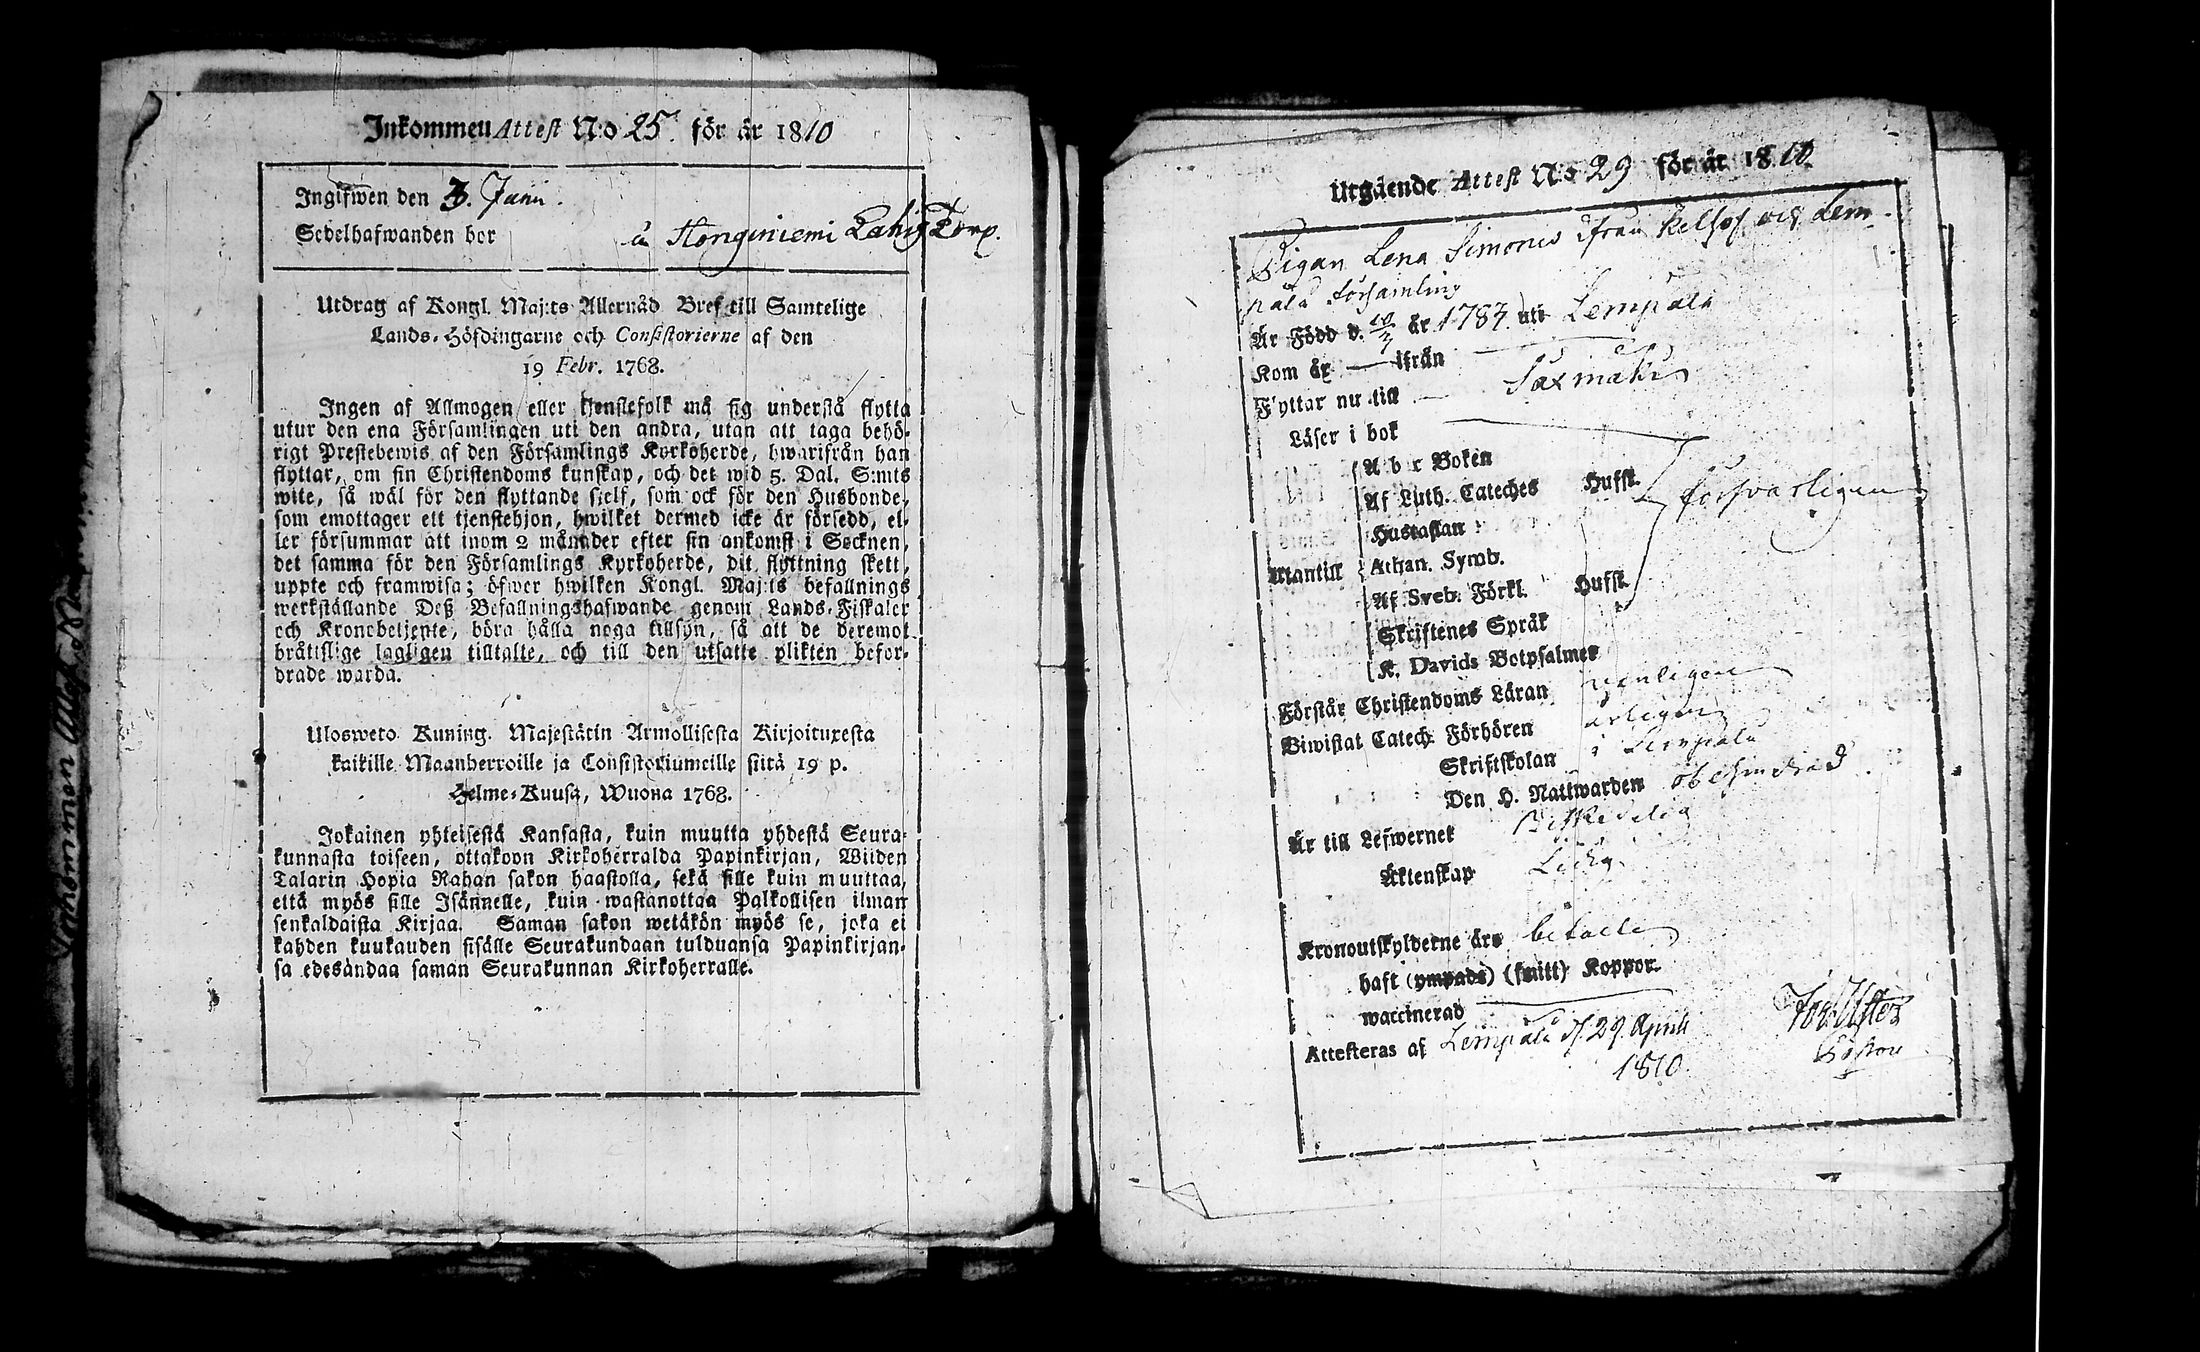 Inkommen Attest No 25. för år 1810
Ingifwen den 3. Junii.
Sedelhafwanden bor å Honginiemi Lahis Torp.
Utdrag af Kongl. Maj:ts Allernåd Bref till Samtelige
Lands-Höfdingarne och Consistorierne af den
19 Febr. 1768.
Ingen af Allmogen eller tjenstefolk må sig understå flytta
utur den ena Församlingen uti den andra, utan att taga behö-
rigt Prestebewis af den Församlings Kyrkoherde, hwarifrån han
flyttar, om sin Christendoms kunskap, och det wid 5. Dal. S:mts
wite, så wäl för den flyttande sjelf, som ock för den Husbonde,
som emottager ett tjenstehjon, hwilket dermed icke är försedd, el-
ler försummar att inom 2 månader efter sin ankomst i Socknen,
det samma för den Församlings Kyrkoherde, dit flyttning skett,
uppte och framwisa; öfwer hwilken Kongl. Maj:ts befallnings
werkställande Deß Befallningshafwande genom Lands-Fiskaler
och Kronobetjente, böra hålla noga tillsyn, så att de deremot
bråttslige lagligen tilltalte, och till den utsatte plikten befor-
drade warda.
Ulosweto Kuning. Majestätin Armollisesta Kirjoituxesta
kaikille Maanherroille ja Consistoriumeille siitä 19 p.
Helme-Kuusa, Wuona 1768.
Jokainen yhteisestä Kansasta, kuin muutta yhdestä Seura-
kunnasta toiseen, ottakoon Kirkoherralda Papinkirjan, Wiiden
Talarin Hopia Rahan sakon haastolla, sekä sille kuin muuttaa,
että myös sille Isännelle, kuin wastanottaa Palkollisen ilman
senkaldaista Kirjaa. Saman sakon wetäkön myös se, joka ei
kahden kuukauden sisälle Seurakundaan tulduansa Papinkirjan-
sa edesändaa saman Seurakunnan Kirkoherralle.
Utgående Attest No 29 för år 1810.
Pigan Lena Simonis ifrån Kelsos och Lem-
pälä församling
Är Född d. 10/7 år 1787 uti Lempälä
Kom år — ifrån —
Flyttar nu till — Saxmäki
Läser i bok
A b c Boken
Af Luth. Cateches Hufst.
Hustaflan
försvarligen
Utantill
Athan. Symb.
Af Sveb. Förkl. Hufst.
Skriftenes Språk
K. Davids Botpsalmer
Förstår Christendoms Läran
Biwistat Catech. Förhören årligen
Skriftskolan i Lempälä
Den H. Nattwarden obehindrad
Är till Lefwernet
Äktenskap Ledig
Kronoutskylderne äro betalte
haft (ympade) (smitt) Koppor.
waccinerad
Attesteras af Lempälä d. 29. Aprill
1810.
Pastor